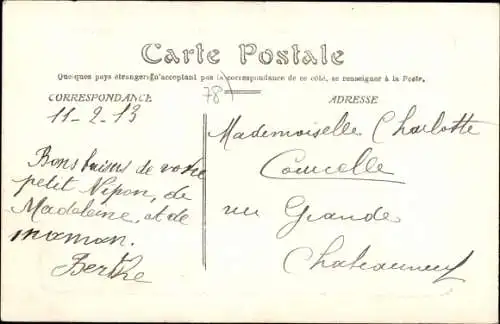 Carte Postale
Quelques pays étrangers n'acceptant pas la correspondance de ce côté, se renseigner à la Poste.
78
CORRESPONDANCE
11-2-13
Bons baisers de votre
petit Nipon, de
Madeleine, et de
maman.
Berthe
ADRESSE
Mademoiselle Charlotte
Courcelle
rue Grande
Chateauneuf